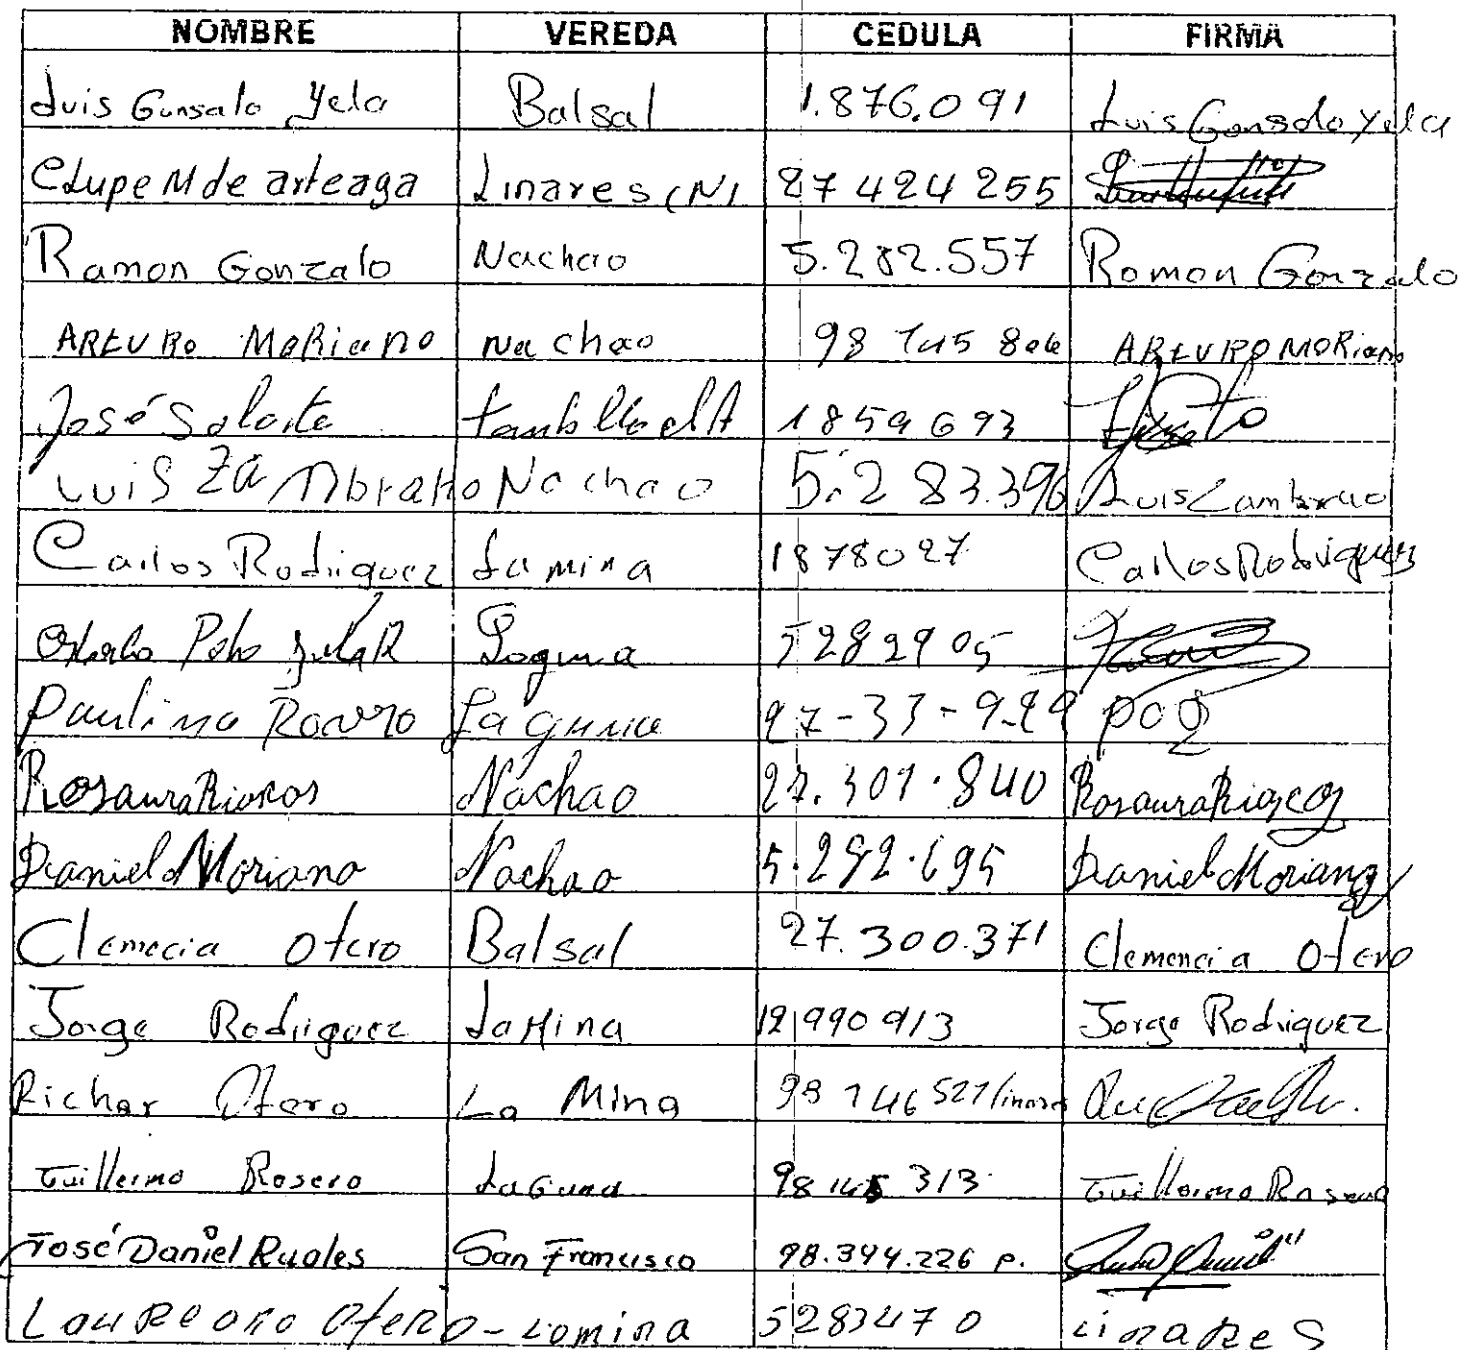 NOMBRE VEREDA CEDULA FIRMA
Luis Gonsalo Yela Balsal 1.876.091 Luis Gonsalo Yela
Clupe M de arteaga Linares (N) 27 424 255
Ramon Gonzalo Nachao 5.282.557 Romon Gonzalo
ARtuRo MoRiano Nachao 98 145 806 ARtuRO MORiano
José Solarte 1859693
Luis Zambrano Nachao 5.283.396 Luis Zambrano
Carlos Rodriguez La mina 1878027 Carlos Rodriguez
Laguna 5282905
Paulino Laguna 27-33-929
Rosaura Riascos Nachao 27.301.840 Rosaura Riascos
Daniel Moriano Nachao 5.282.695 Daniel Moriano
Clemecia Otero Balsal 27.300.371 Clemencia Otero
Jorge Rodriguez La Mina 12990913 Jorge Rodriguez
Richar Otero La Mina 98 146 527/linares
Guillermo Rosero La Guna 98 145 313 Guillermo Rosero
José Daniel Ruales San Francisco 98.394.226 P.
LauReano OteRO - Lamina 5283470 LinaReS